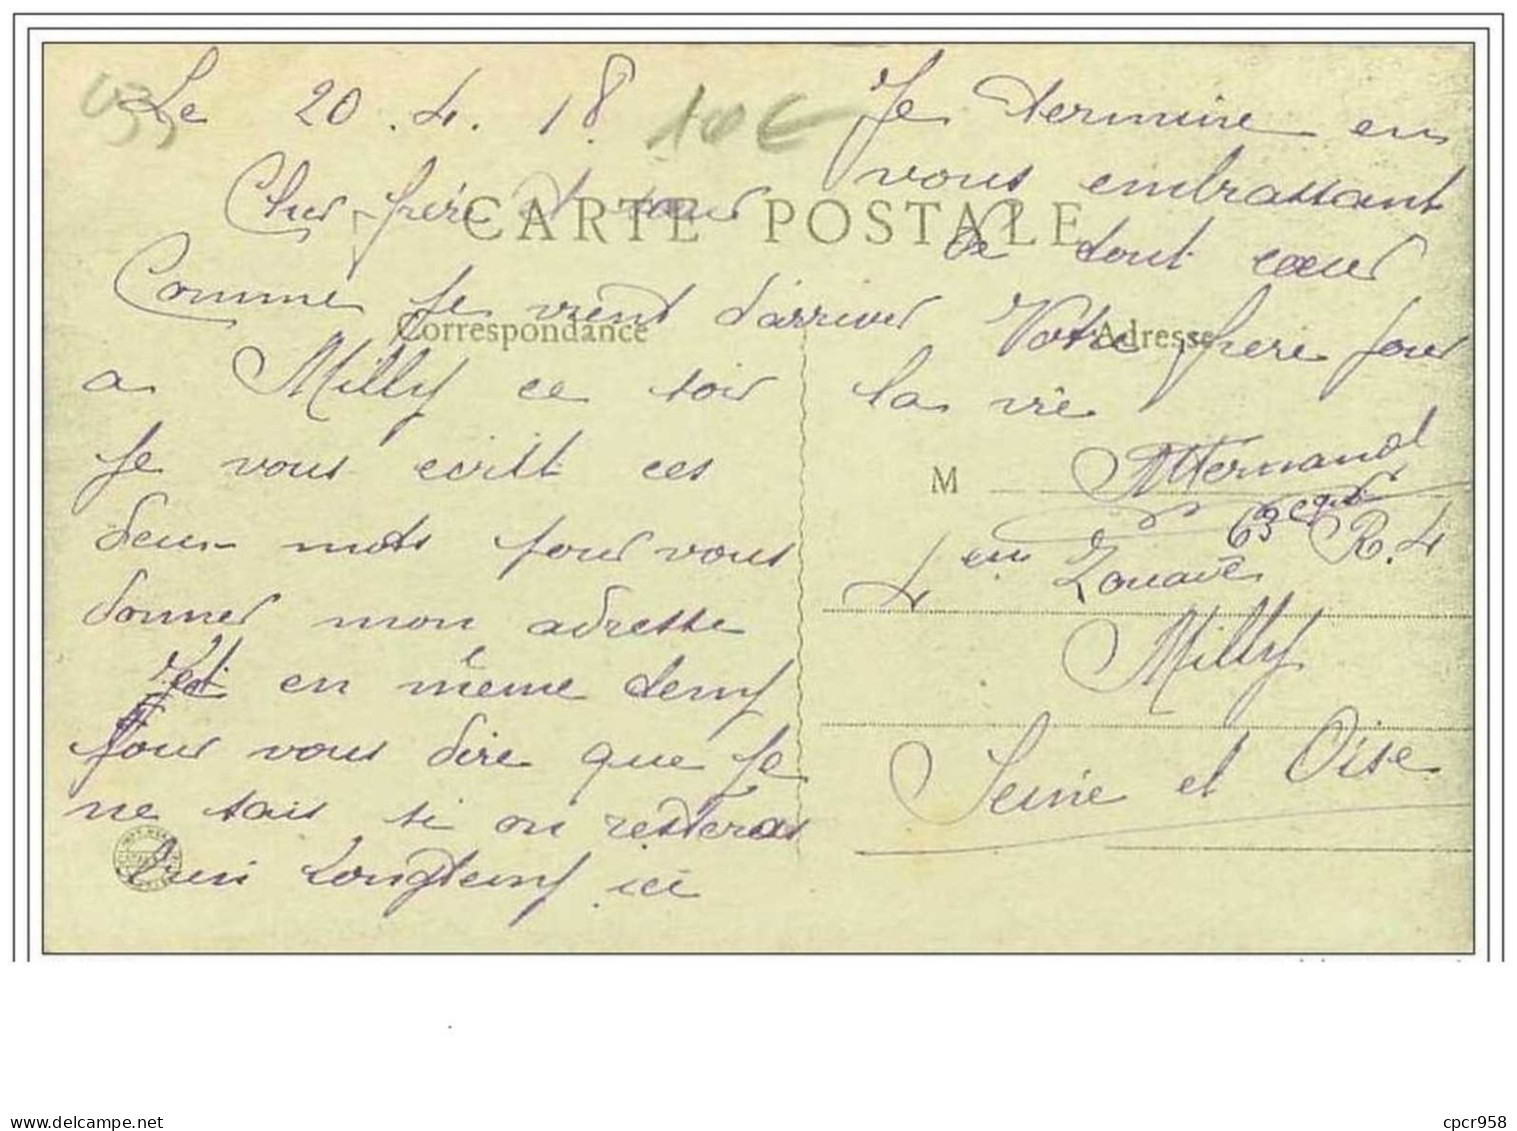 Le 20.4.18
10€
Cher frère et sœur
CARTE POSTALE
Correspondance
Comme je vient d'arriver
a Milly ce soir
je vous ecrit ces
deux mots pour vous
donner mon adresse
Et en même temp
pour vous dire que je
ne sais si on resteras
bien longtemp ici
Je termine en
vous embrassant
de tout cœur
Adresse
Votre frere pour
la vie
M
63 R.4
4eme Zouaves
Milly
Seine et Oise
cpcr958